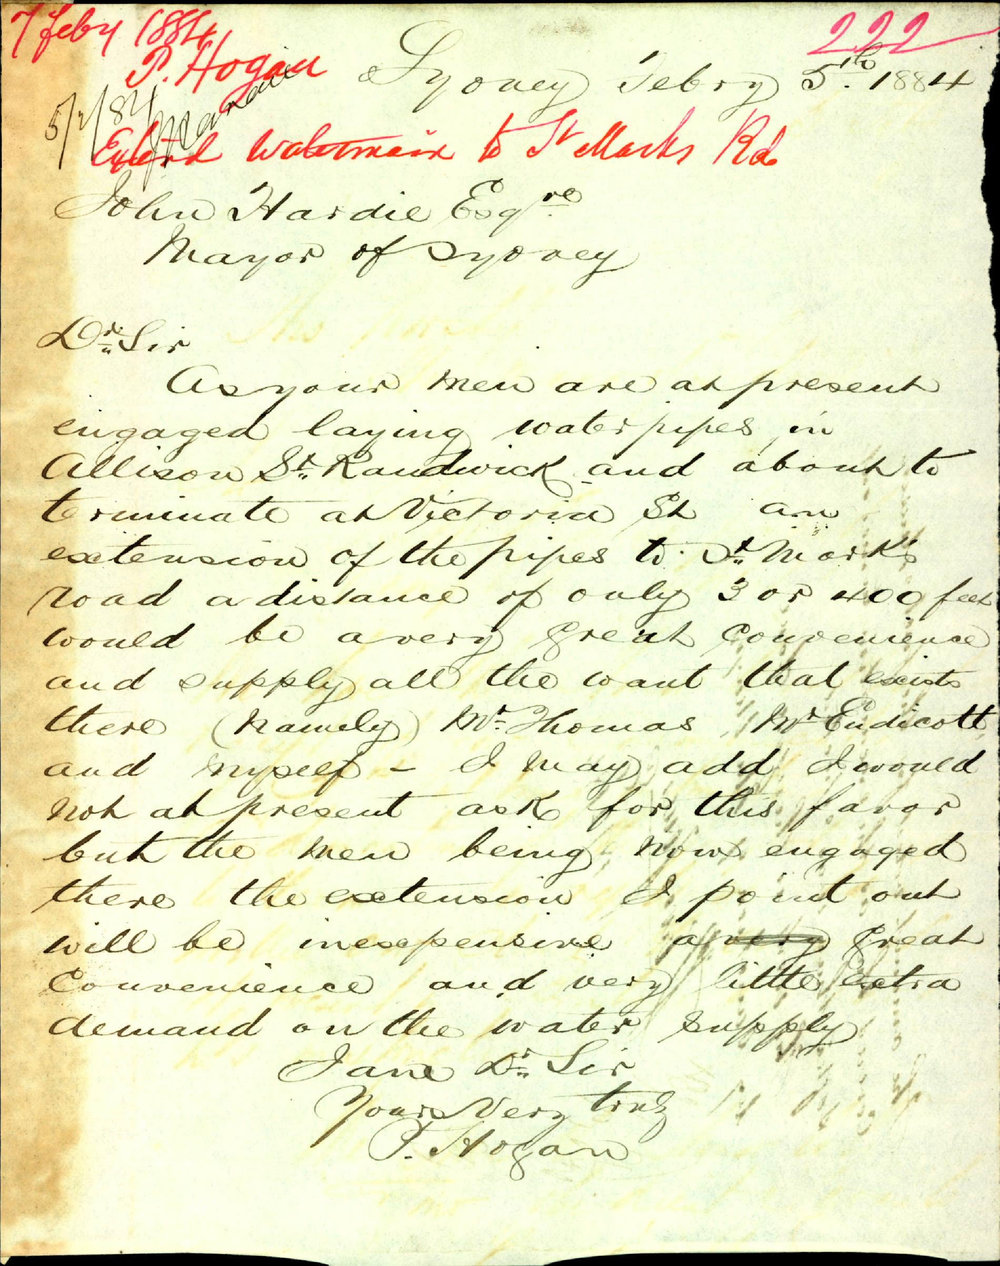 7 Feby 1884
222
P. Hogan
Sydney Febry 5th. 1884
5/2/84
Extend Watermain to St Marks Rd
John Hardie Esqre
Mayor of Sydney
Dr. Sir
As your men are at present
engaged laying water pipes in
Allison St. Randwick and about to
terminate at Victoria St an
extension of the pipes to St. Mark's
road a distance of only 3 or 400 feet
would be a very great convenience
and supply all the want that exists
there (Namely) Mr. Thomas Mr Endicott
and myself - I may add I would
not at present ask for this favor
but the men being now engaged
there the extension I point out
will be inexpensive a very great
convenience and very little extra
demand on the water supply
I are Dr. Sir
Yours Very truly
P. Hogan